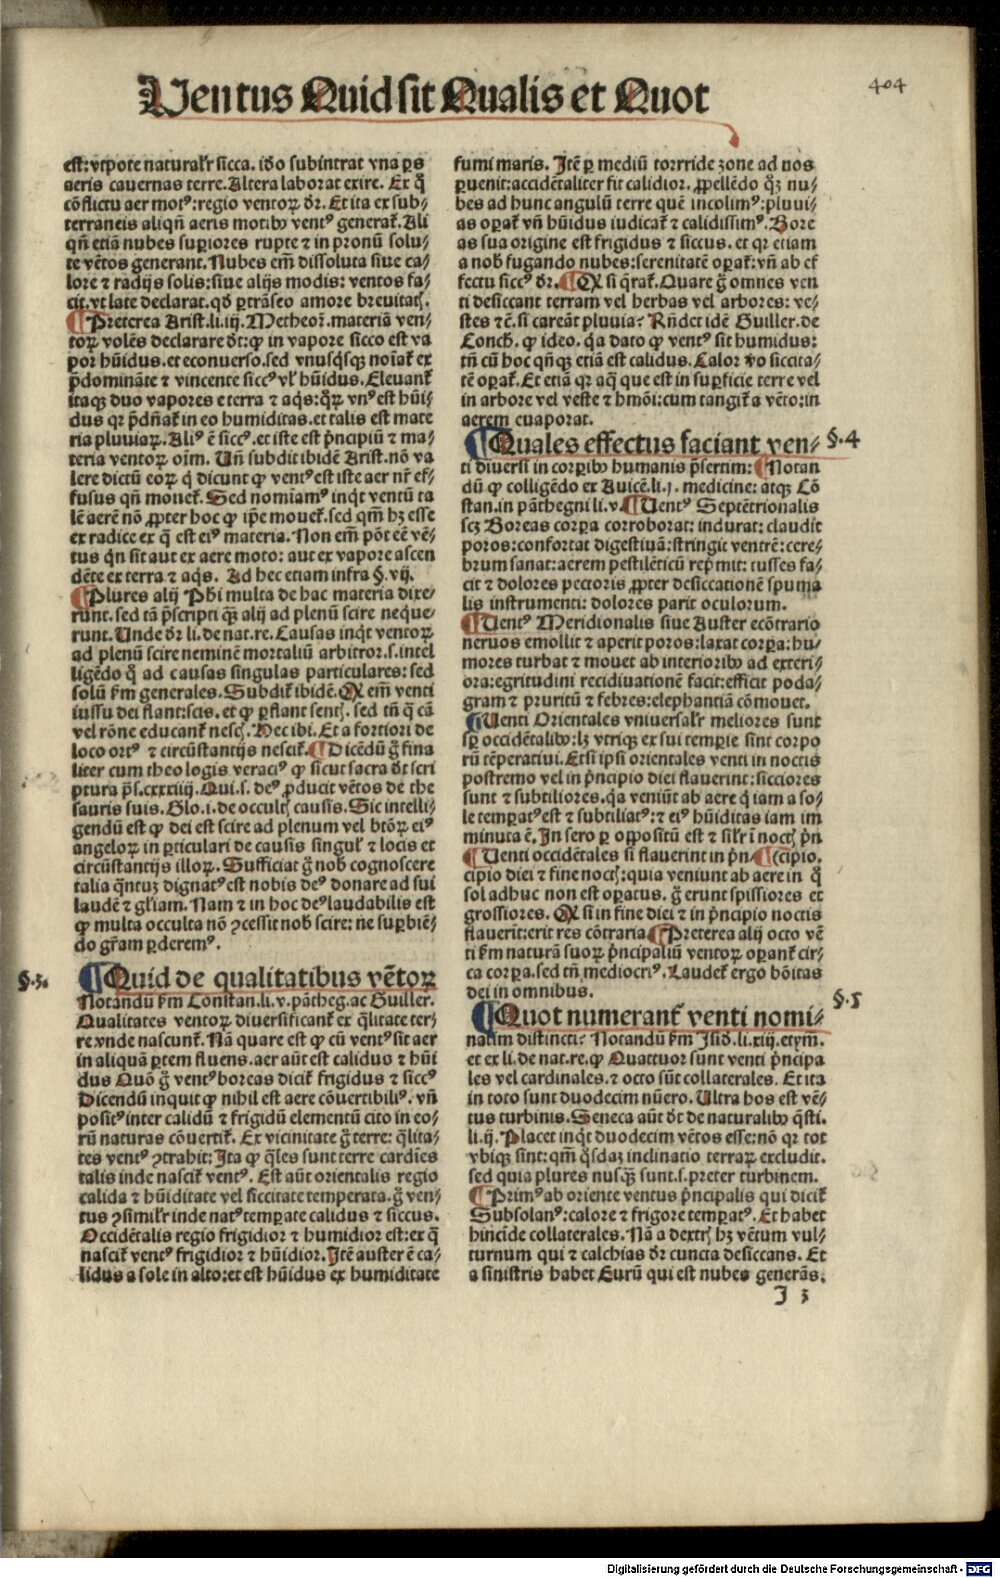 Uentus Quid sit Qualis et Quot
404
est: vtpote naturalr̃ sicca. ido subintrat vna ꝑs
aeris cauernas terre. Altera laborat exire. Ex q̃
cõflictu aer motꝰ: regio ventoꝝ dr̃. Et ita ex sub-
terraneis aliqñ aeris motibꝰ ventꝰ generat᷑. Ali
qñ etiã nubes suꝑiores rupte ⁊ in pronũ solu-
te vẽtos generant. Nubes em̃ dissoluta siue ca-
lore ⁊ radijs solis: siue alijs modis: ventos fa-
cit. vt late declarat. qd̃ ꝑtrãseo amore breuitatꝭ.
¶ Preterea Arist. li. iij. Metheoꝝ. materiã ven-
toꝝ volẽs declarare dt̃: ꝙ in vapore sicco est va
por hũidus. et econuerso. sed vnusq̃sqꝫ noĩat᷑ ex
p̃dominãte ⁊ vincente siccꝰ vl᷑ hũidus. Eleuant᷑
itaqꝫ duo vapores e terra ⁊ aq̃s: q̃ꝝ vnꝰ est hũi-
dus qr p̃dñat᷑ in eo humiditas. et talis est mate
ria pluuiaꝝ. Aliꝰ ẽ siccꝰ. et iste est p̃ncipiũ ⁊ ma-
teria ventoꝝ oĩm. Uñ subdit ibidẽ Arist. nõ va
lere dictũ eoꝝ q̃ dicunt ꝙ ventꝰ est iste aer nr̃ ef-
fusus qñ mouet᷑. Sed nomĩamꝰ inq̃t ventũ ta
lẽ aerẽ nõ ꝓpter hoc ꝙ ip̃e mouet᷑. sed qm̃ hꝫ esse
ex radice ex q̃ est eiꝰ materia. Non em̃ põt eẽ vẽ-
tus q̃n sit aut ex aere moto: aut ex vapore ascen
dẽte ex terra ⁊ aq̃s. Ad hec etiam infra §. vij.
¶ Plures alij Phi multa de hac materia dixe-
runt. sed tã p̃scripti qꝫ alij ad plenũ scire neque-
runt. Unde dr̃ li. de nat. re. Causas inq̃t ventoꝝ
ad plenũ scire neminẽ mortaliũ arbitror. s. intel
ligẽdo q̃ ad causas singulas particulares: sed
solũ ẜm generales. Subdit᷑ ibidẽ. Qʒ em̃ venti
iussu dei flant: scis. et ꝙ ꝑflant sentꝭ. sed tñ q̃ cã
vel rõne educant᷑ nescꝭ. Hec ibi. Et a fortiori de
loco ortꝰ ⁊ circũstantijs nescit᷑. ¶ Dicẽdũ g̃ fina
liter cum theologis veraciꝰ ꝙ sicut sacra dt̃ scri
ptura ps̃. cxxxiiij. Qui. s. deꝰ ꝓducit vẽtos de the
sauris suis. Glo. i. de occultꝭ causis. Sic intelli-
gendũ est ꝙ dei est scire ad plenum vel btõꝝ eiꝰ
angeloꝝ in ꝑticulari de causis singul᷑ ⁊ locis et
circũstantijs illoꝝ. Sufficiat g̃ nob cognoscere
talia q̃ntuꝫ dignatꝰ est nobis deꝰ donare ad sui
laudẽ ⁊ gl'iam. Nam ⁊ in hoc deꝰ laudabilis est
ꝙ multa occulta nõ ↄcessit nob scire: ne suꝑbiẽ-
do gr̃am ꝑderemꝰ.
§.3.
¶ Quid de qualitatibus vẽtoꝝ
Notandũ ẜm Constan. li. v. pãtheg. ac Guiller.
Qualitates ventoꝝ diuersificant᷑ ex q̃litate ter-
re vnde nascunt᷑. Nã quare est ꝙ cũ ventꝰ sit aer
in aliquã ꝑtem fluens. aer aũt est caliduo ⁊ hũi
dus Quõ g̃ ventꝰ boreas dicit᷑ frigidus ⁊ siccꝰ
Dicendũ inquit ꝙ nihil est aere cõuertibiliꝰ. vñ
positꝰ inter calidũ ⁊ frigidũ elementũ cito in eo-
rũ naturas cõuertit᷑. Ex vicinitate g̃ terre: q̃lita-
tes ventꝰ ↄtrahit: Ita ꝙ q̃les sunt terre cardĩes
talis inde nascit᷑ ventꝰ. Est aũt orientalis regio
calida ⁊ hũiditate vel siccitate temperata. g̃ ven-
tus ↄsimilr̃ inde natꝰ temꝑate calidus ⁊ siccus.
Occidẽtalis regio frigidior ⁊ humidior est: ex q̃
nascit᷑ ventꝰ frigidior ⁊ hũidior. Itẽ auster ẽ ca-
lidus a sole in alto: et est hũidus ex humiditate
fumi maris. Itẽ ꝑ mediũ torrride zone ad nos
ꝑuenit: accidẽtaliter fit calidior. ꝓpellẽdo q̃ꝫ nu-
bes ad hunc angulũ terre quẽ incolimꝰ: pluui-
as oꝑat᷑ vñ hũidus iudicat᷑ ⁊ calidissimꝰ. Bore
as sua origine est frigidus ⁊ siccus. et qr etiam
a nob fugando nubes: serenitatẽ oꝑat᷑: vñ ab ef
fectu siccꝰ dr̃. ¶ Qʒ si q̃rat᷑. Quare g̃ omnes ven
ti desiccant terram vel herbas vel arbores: ve-
stes ⁊c̃. si careãt pluuia? Rñdet idẽ Guiller. de
Conch. ꝙ ideo. q̃a dato ꝙ ventꝰ sit humidus:
tñ cũ hoc qñqꝫ etiã est calidus. Calor ṽo siccita-
tẽ oꝑat᷑. Et etiã qr aq̃ que est in suꝑficie terre vel
in arbore vel veste ⁊ hmõi: cum tangit᷑ a vẽto: in
aerem euaporat.
¶ Quales effectus faciant ven-
§.4
ti diuersi in corꝑibꝰ humanis p̃sertim: ¶ Notan
dũ ꝙ colligẽdo ex Auicẽ. li. j. medicine: atqꝫ Cõ
stan. in pãthegni li. v. ¶ Uentꝰ Septẽtrionalis
scꝫ Boreas corꝑa corroborat: indurat: claudit
poros: confortat digestiuã: stringit ventrẽ: cere-
brum sanat: aerem pestilẽticũ rep̃mit: tusses fa-
cit ⁊ dolores pectoris ꝓpter desiccationẽ spuma
lis instrumenti: dolores parit oculorum.
¶ Uentꝰ Meridionalis siue Auster ecõtrario
neruos emollit ⁊ aperit poros: laxat corꝑa: hu-
mores turbat ⁊ mouet ab interioribꝰ ad exteri-
ora: egritudini recidiuationẽ facit: efficit poda-
gram ⁊ pruritũ ⁊ febres: elephantiã cõmouet.
¶ Uenti Orientales vniuersalr̃ meliores sunt
sꝑ occidẽtalibꝰ: lꝫ vtriqꝫ ex sui temꝑie sint corpo
rũ tẽperatiui. Et si ipsi orientales venti in noctis
postremo vel in p̃ncipio diei flauerint: sicciores
sunt ⁊ subtiliores. q̃a veniũt ab aere q̃ iam a so-
le temꝑatꝰ est ⁊ subtiliatꝰ: ⁊ eiꝰ hũiditas iam im
minuta ẽ. In sero ꝑ oppositũ est ⁊ sil'r ĩ noctꝭ p̃n
¶ Uenti occidẽtales si flauerint in p̃n ¶ cipio.
cipio diei ⁊ fine noctꝭ: quia veniunt ab aere in q̃
sol adhuc non est oꝑatus. g̃ erunt spissiores et
grossiores. Qʒ si in fine diei ⁊ in p̃ncipio noctis
flauerit: erit res cõtraria ¶ Preterea alij octo vẽ
ti ẜm naturã suoꝝ p̃ncipaliũ ventoꝝ oꝑant᷑ cir-
ca corꝑa. sed tñ mediocriꝰ. Laudet᷑ ergo bõitas
dei in omnibus.
¶ Quot numerant᷑ venti nomi-
§.5
natim distincti? Notandũ ẜm Isid. li. xiij. etym̃.
et ex li. de nat. re. ꝙ Quattuor sunt venti p̃ncipa
les vel cardinales. ⁊ octo sũt collaterales. Et ita
in toto sunt duodecim nũero. Ultra hos est vẽ-
tus turbinis. Seneca aũt dt̃ de naturalibꝰ q̃sti.
li. ij. Placet inq̃t duodecim vẽtos esse: nõ qr tot
vbiqꝫ sint: qm̃ q̃sdaꝫ inclinatio terraꝝ excludit.
sed quia plures nusq̃ꝫ sunt. s. preter turbinem.
¶ Primꝰ ab oriente ventus p̃ncipalis qui dicit᷑
Subsolanꝰ: calore ⁊ frigore temꝑatꝰ. Et habet
hincĩde collaterales. Nã a dextrꝭ hꝫ vẽtum vul-
turnum qui ⁊ calchias dr̃ cuncta desiccans. Et
a sinistris habet Eurũ qui est nubes generãs.
I 3
Digitalisierung gefördert durch die Deutsche Forschungsgemeinschaft - DFG